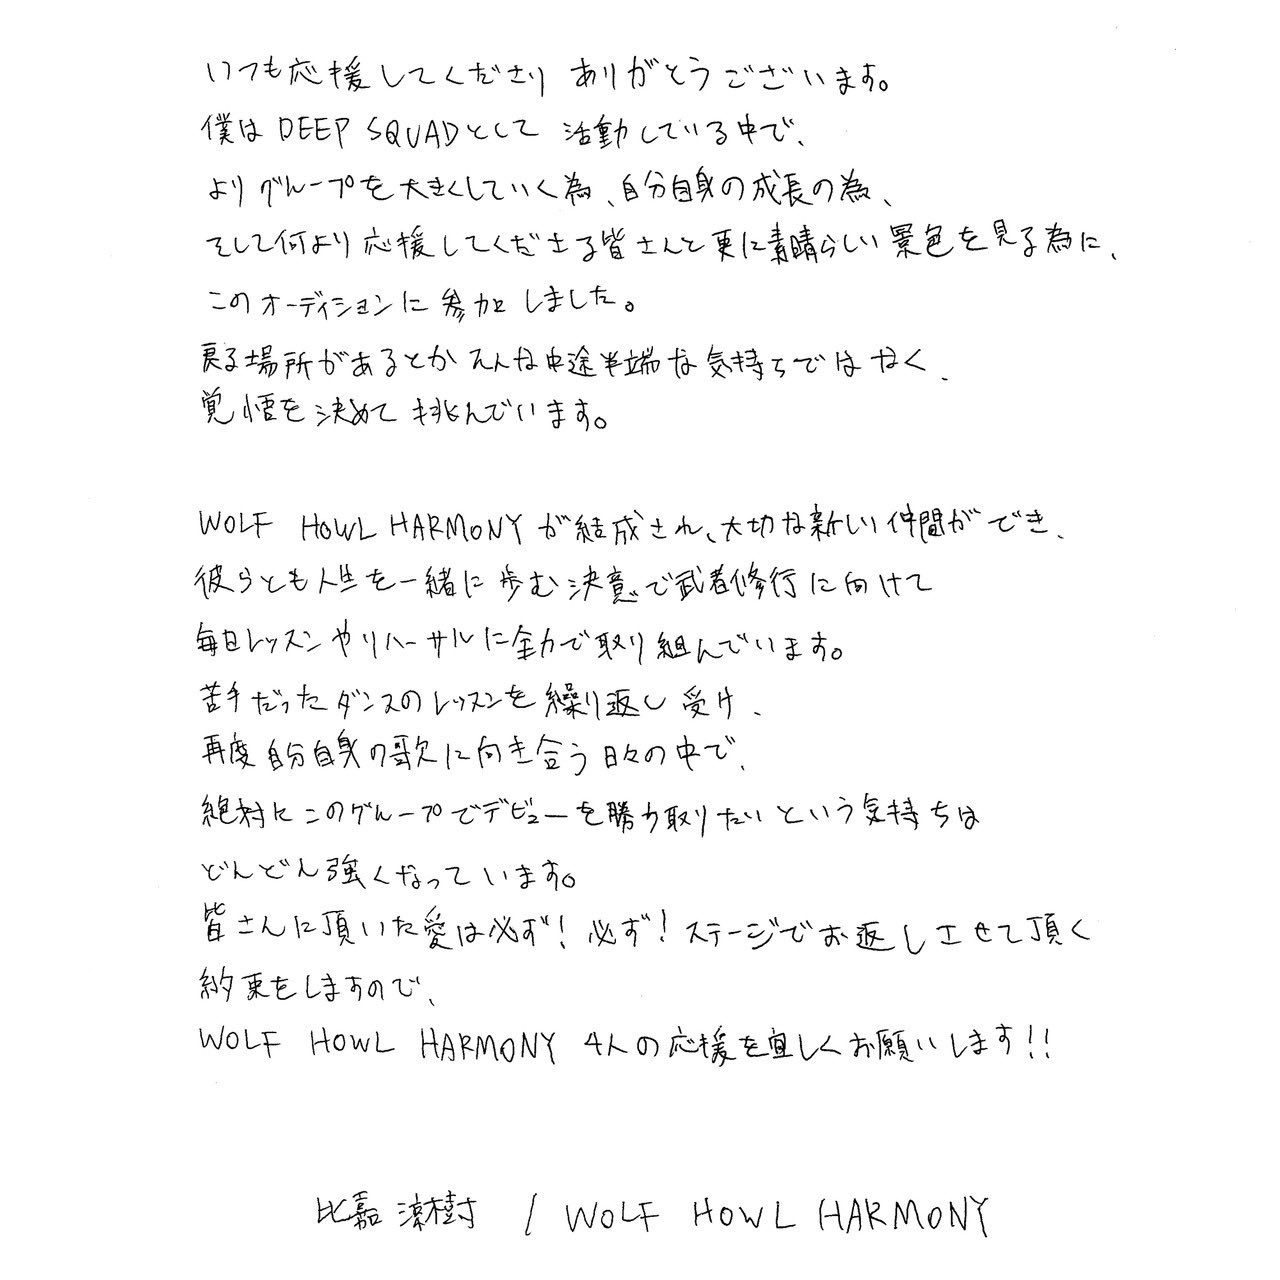 いつも応援してくださり ありがとうございます。
僕は DEEP SQUADとして 活動している中で、
よりグループを大きくしていく為、自分自身の成長の為、
そして何より応援してくださる皆さんと更に素晴らしい景色を見る為に、
このオーディションに参加しました。
戻る場所があるとかそんな中途半端な気持ちではなく、
覚悟を決めて挑んでいます。
WOLF HOWL HARMONYが結成され、大切な新しい仲間ができ、
彼らとも人生を一緒に歩む決意で武者修行に向けて
毎日レッスンやリハーサルに全力で取り組んでいます。
苦手だったダンスのレッスンを繰り返し受け、
再度自分自身の歌に向き合う日々の中で、
絶対にこのグループでデビューを勝ち取りたいという気持ちは
どんどん強くなっています。
皆さんに頂いた愛は必ず！必ず！ステージでお返しさせて頂く
約束をしますので、
WOLF HOWL HARMONY 4人の応援を宜しくお願いします!!
比嘉 涼樹 / WOLF HOWL HARMONY